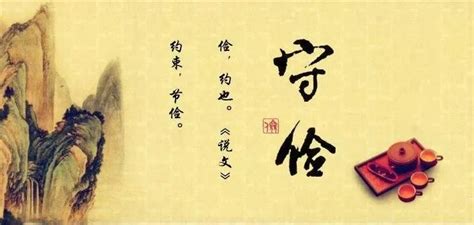 守俭
俭，约也。《说文》
约束，节俭。